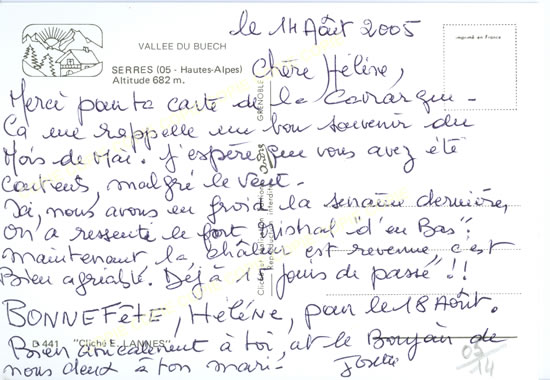 le 14 Août 2005
VALLEE DU BUECH
imprimé en France
SERRES (05 - Hautes-Alpes)
Altitude 682 m.
Chère Hélène,
Merci pour ta carte de la Camargue -
Ça me rappelle un bon souvenir du
Mois de Mai. J'espère que vous avez été
contents, malgré le vent -
Ici, nous avons eu froid la semaine dernière,
on a ressenti le fort mistral "d'en Bas".
maintenant la chaleur est revenue, c'est
Bien agréable. Déjà 1 jours de passé !!
BONNE Fête, Hélène, pour le 18 Août.
D 441 "Cliché E. LANNES"
Bien amicalement à toi, et le Bonjour de
nous deux à ton mari - Josette
05
14
GRENOBLE